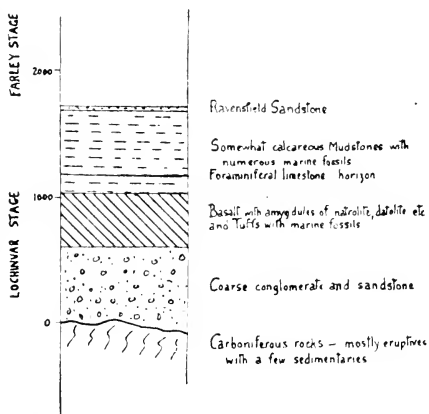 FARLEY STAGE
2000
Ravensfield Sandstone
Somewhat calcareous Mudstones with
numerous marine fossils
Foraminiferal limestone horizon
1000
LOCHINVAR STAGE
Basalt with amygdules of natrolite, datolite etc
and Tuffs with marine fossils
Coarse conglomerate and sandstone
0
Carboniferous rocks – mostly eruptives
with a few sedimentaries